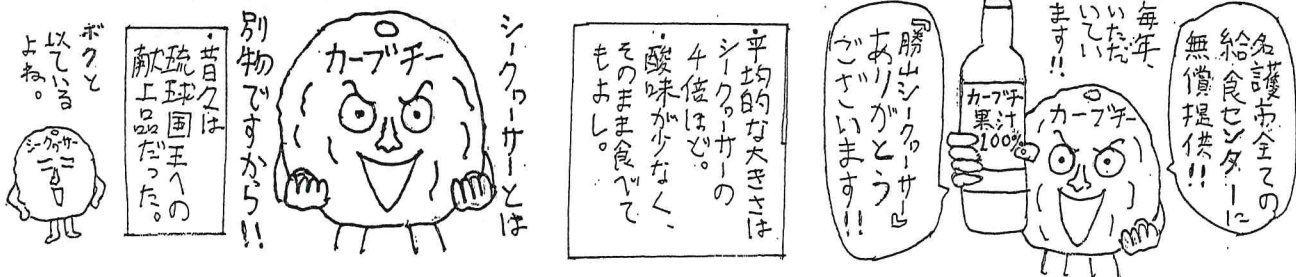 名護市全ての
給食センターに
無償提供!!
毎年、
いただ
いてい
ます!!
カーブチー
カーブチー
果汁
100%
『勝山シークヮーサー』
ありがとう
ございます!!
・平均的な大きさは
シークヮーサーの
4倍ほど。
・酸味が少なく、
そのまま食べて
もよし。
シークヮーサーとは
別物ですから!!
カーブチー
・昔々は
琉球国王への
献上品だった。
ボクと
似ている
よね。
シークヮサー